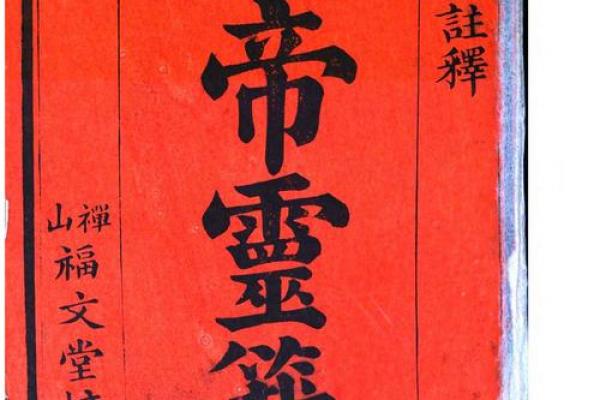 註釋
帝靈籤
禪山
福文堂